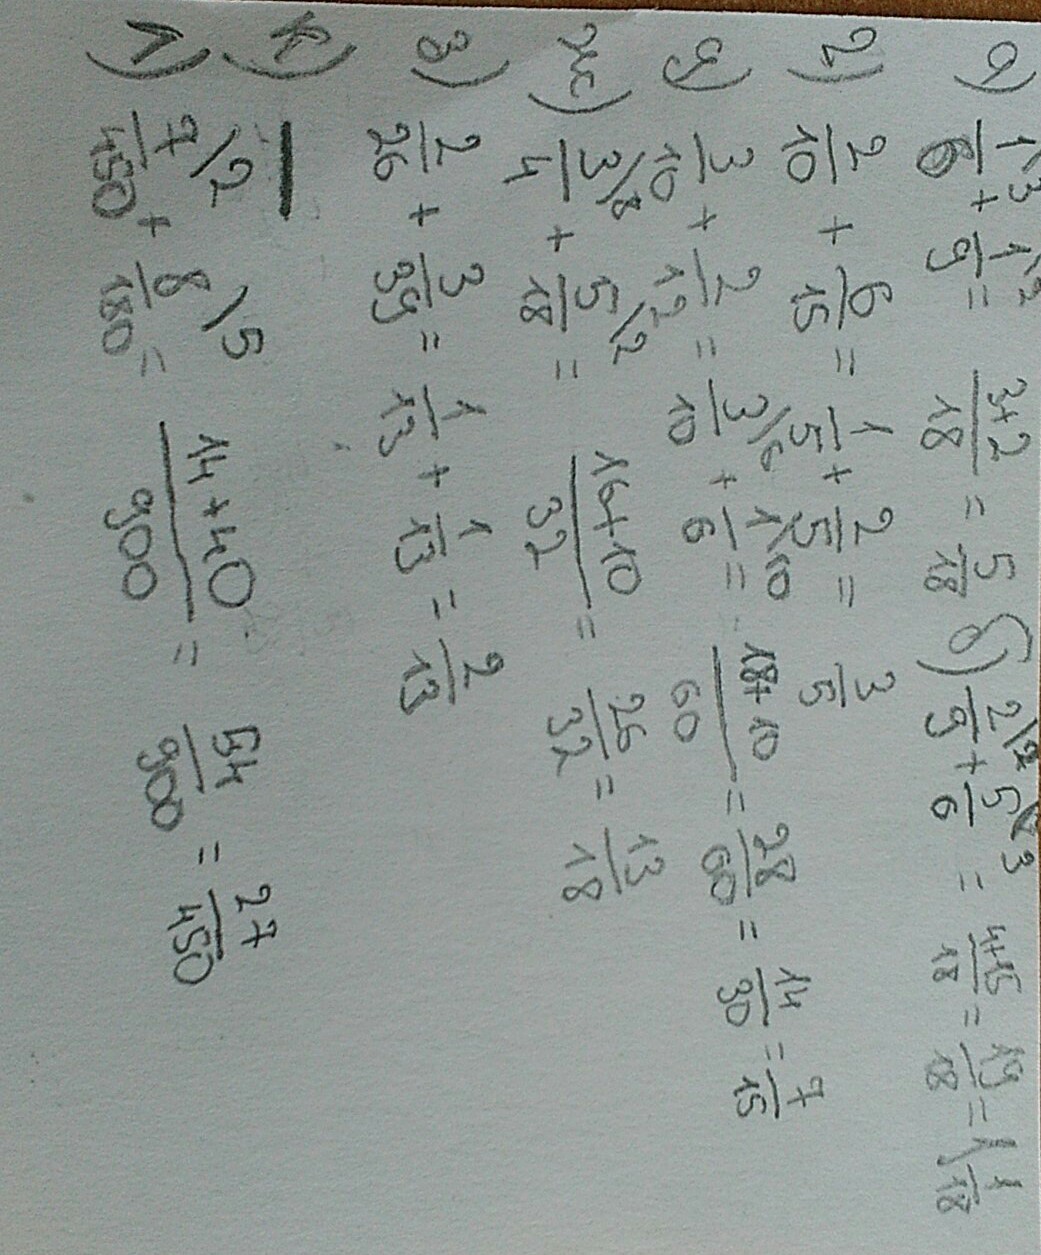 а) 1/6 \3 + 1/9 \2 = 3+2/18 = 5/18 б) 2/9 \2 + 5/6 \3 = 4+15/18 = 19/18 = 1 1/18
г) 2/10 + 6/15 = 1/5 + 2/5 = 3/5
д) 3/10 + 2/12 = 3/10 \6 + 1/6 \10 = 18+10/60 = 28/60 = 14/30 = 7/15
ж) 3/4 \8 + 5/18 \2 = 16+10/32 = 26/32 = 13/18
з) 2/26 + 3/39 = 1/13 + 1/13 = 2/13
к) —
л) 7/450 \2 + 8/180 \5 = 14+40/900 = 54/900 = 27/450